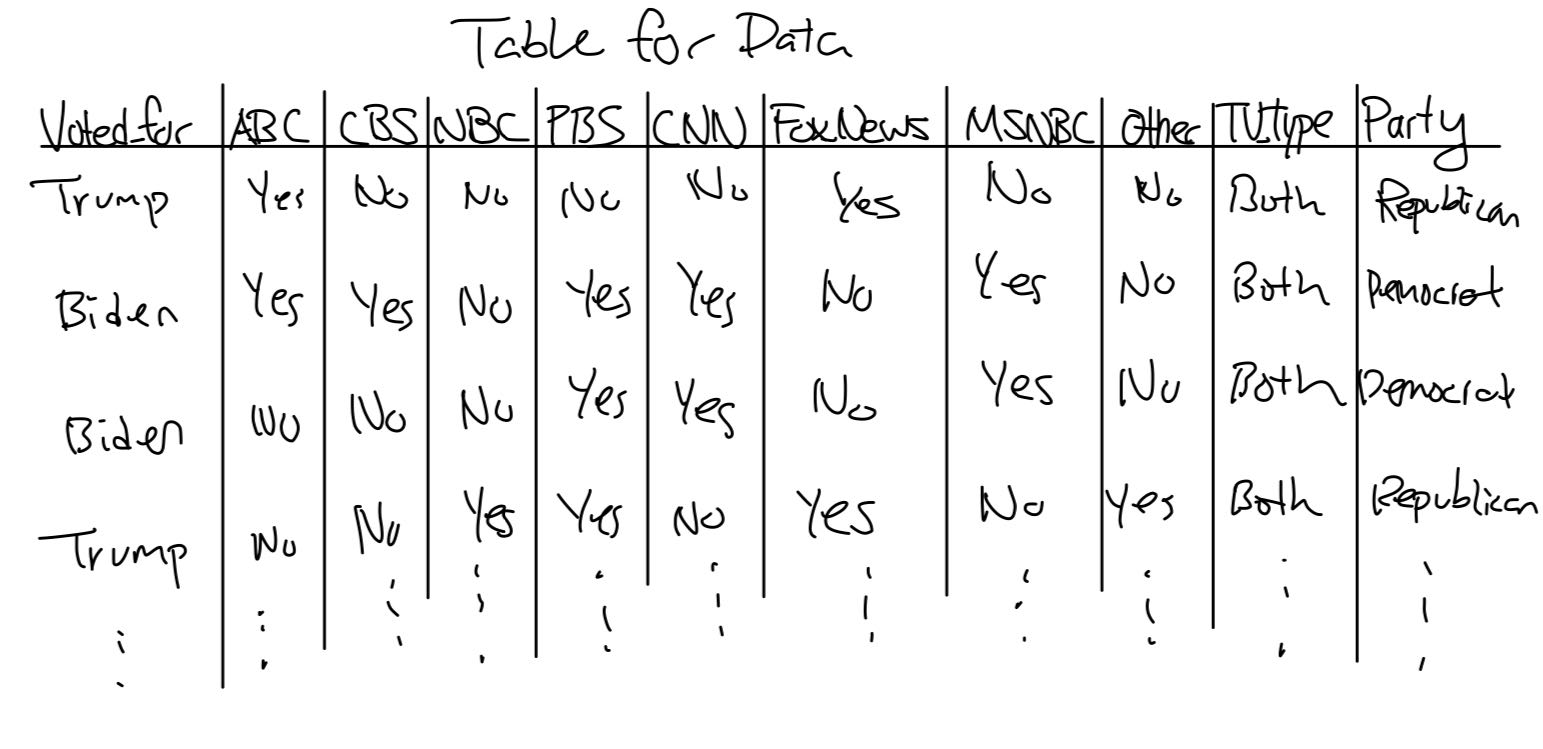 Table for Data
Voted_for ABC CBS NBC PBS CNN FoxNews MSNBC Other TV_Type Party
Trump Yes No No No No Yes No No Both Republican
Biden Yes Yes No Yes Yes No Yes No Both Democrat
Biden No No No Yes Yes No Yes No Both Democrat
Trump No No Yes Yes No Yes No Yes Both Republican